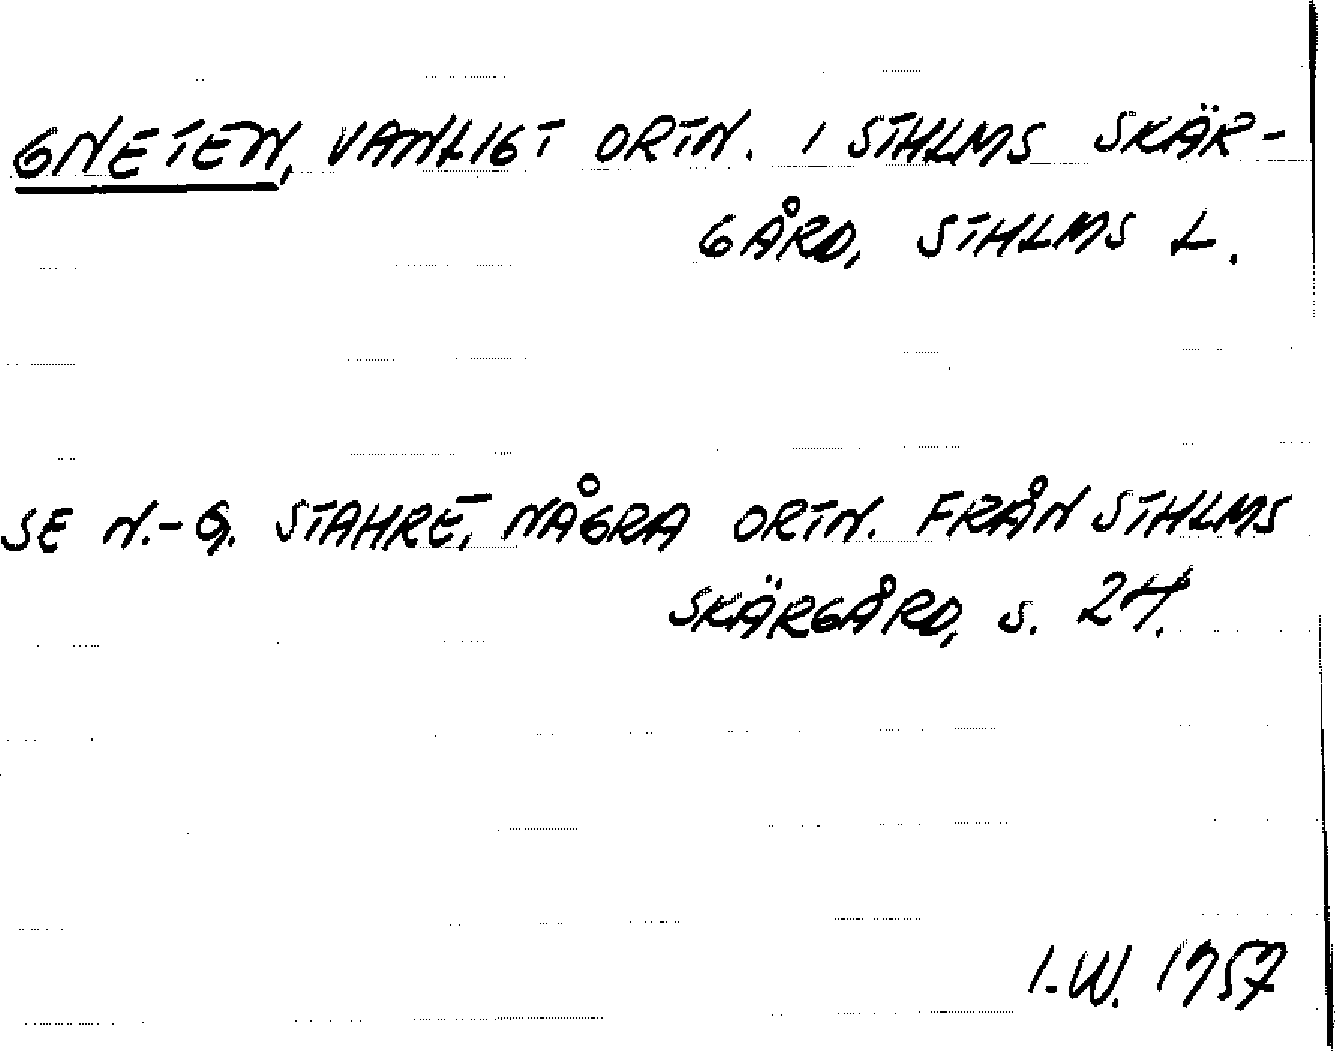 GNETEN, VANLIGT ORTN. I STHLMS SKÄR-
GÅRD, STHLMS L.
SE N.-G. STAHRE, NÅGRA ORTN. FRÅN STHLMS
SKÄRGÅRD, S. 24.
I.W. 1957